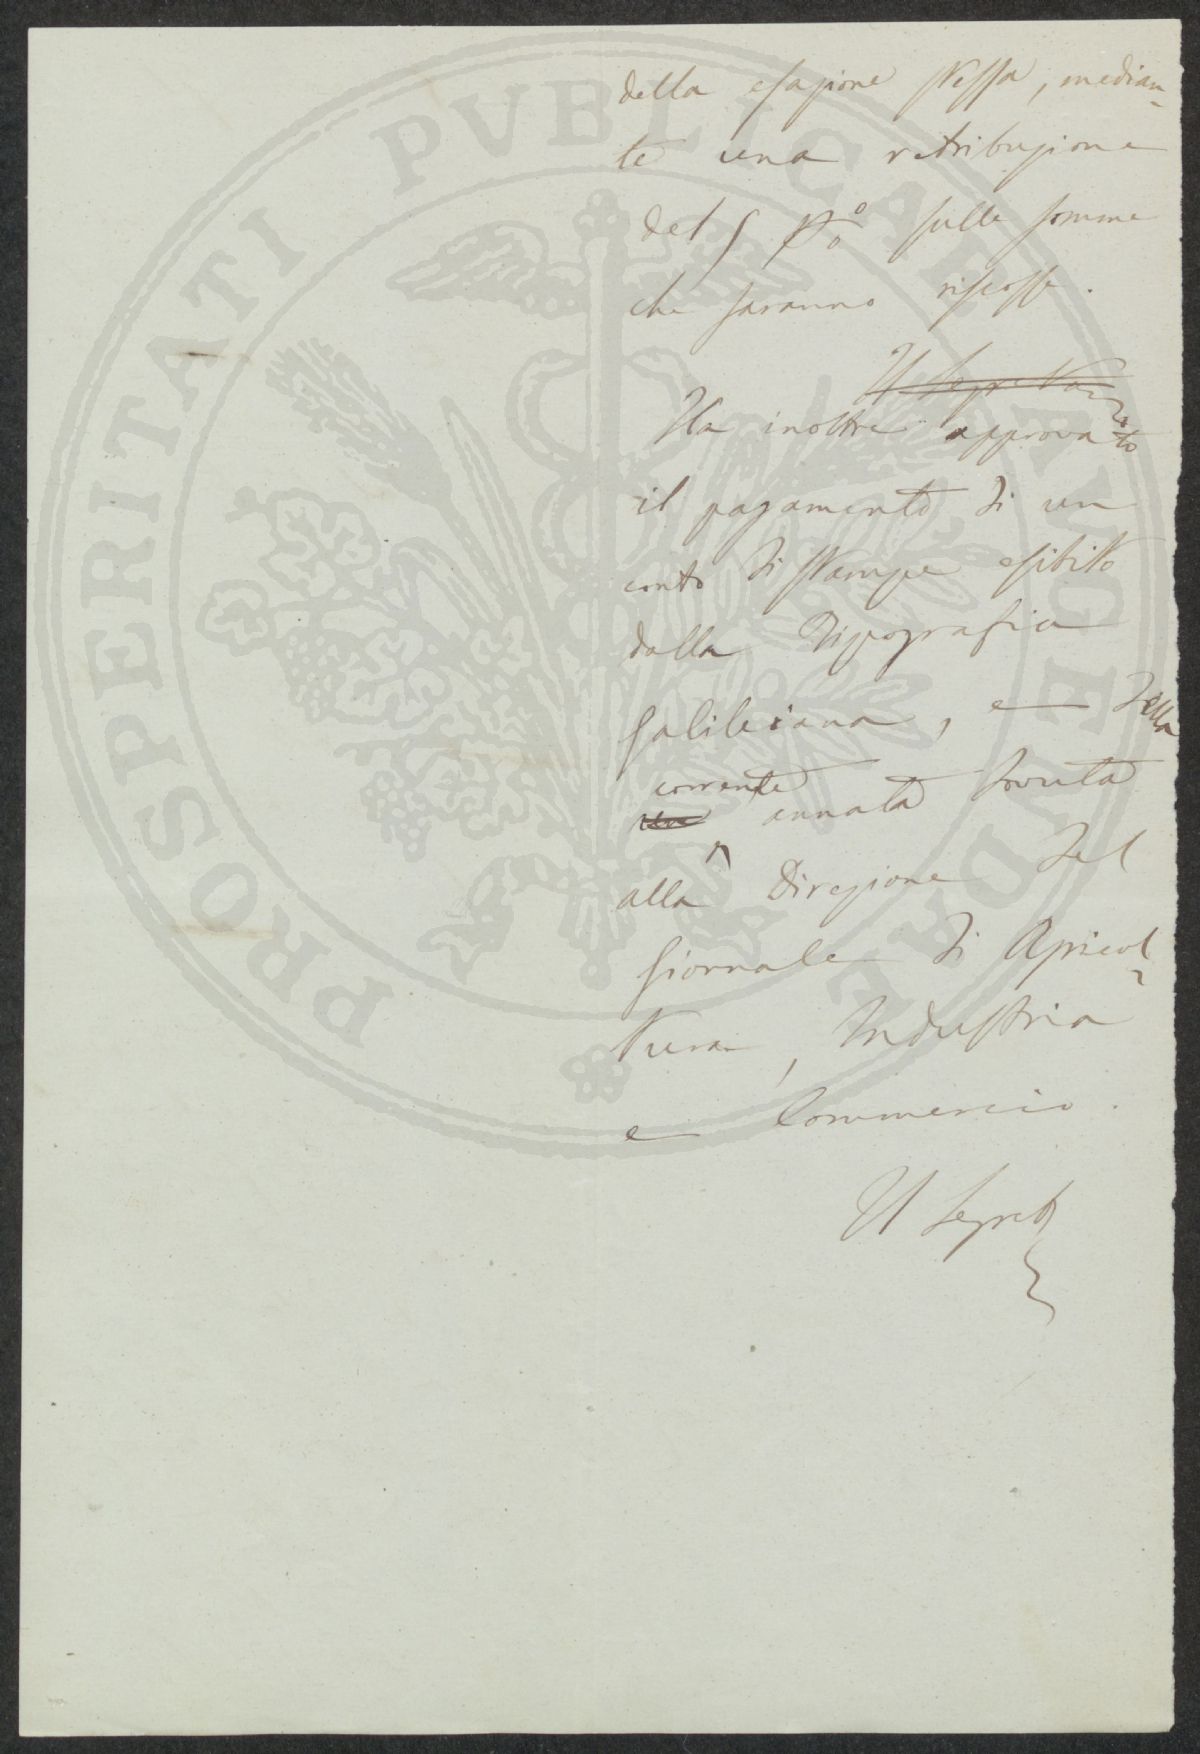 della esazione stessa, median-
te una retribuzione
del 5 p%o sulle somme
che saranno riscosse.
Il Segretario
Ha inoltre approvato
il pagamento di un
conto di stampe esibito
dalla Tipografia
Galileiana, e della
corrente
annata dovuta
alla Direzione del
Giornale di Agricol-
tura, Industria
e Commercio.
Il Segret
PROSPERITATI PVBLICAE AVGENDAE